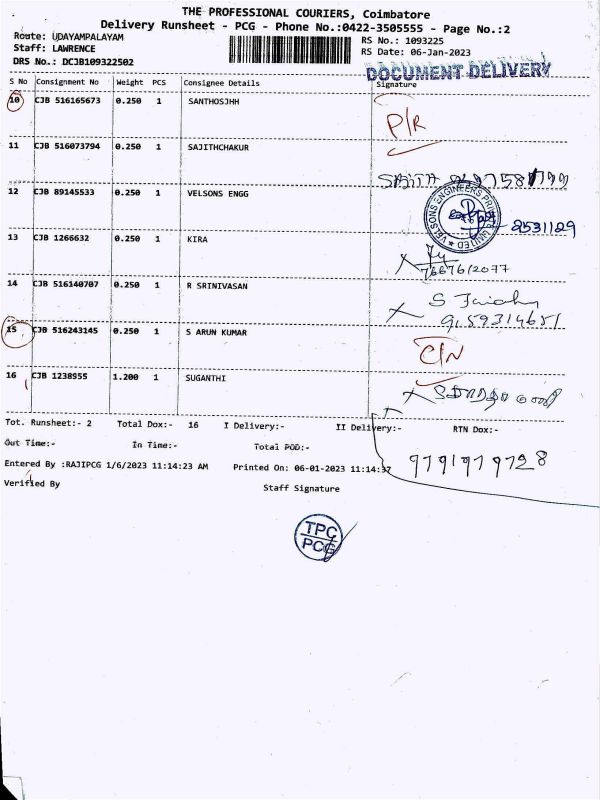 THE PROFESSIONAL COURIERS, Coimbatore
Delivery Runsheet - PCG - Phone No.:0422-3505555 - Page No.:2
Route: UDAYAMPALAYAM
RS No.: 1093225
Staff: LAWRENCE
RS Date: 06-Jan-2023
DRS No.: DCJB109322502
DOCUMENT DELIVERY
S No Consignment No Weight PCS Consignee Details Signature
10 CJB 516165673 0.250 1 SANTHOSJHH P/R
11 CJB 516073794 0.250 1 SAJITHCHAKUR
12 CJB 89145533 0.250 1 VELSONS ENGG
VELSONS ENGINEERS PRIVATE LIMITED
2531129
13 CJB 1266632 0.250 1 KIRA
14 CJB 516140707 0.250 1 R SRINIVASAN
15 CJB 516243145 0.250 1 S ARUN KUMAR C/N
16 CJB 1238955 1.200 1 SUGANTHI
Tot. Runsheet:- 2 Total Dox:- 16 I Delivery:- II Delivery:- RTN Dox:-
Out Time:- In Time:- Total POD:-
9791979728
Entered By :RAJIPCG 1/6/2023 11:14:23 AM Printed On: 06-01-2023 11:14:37
Verified By Staff Signature
TPC
PCG